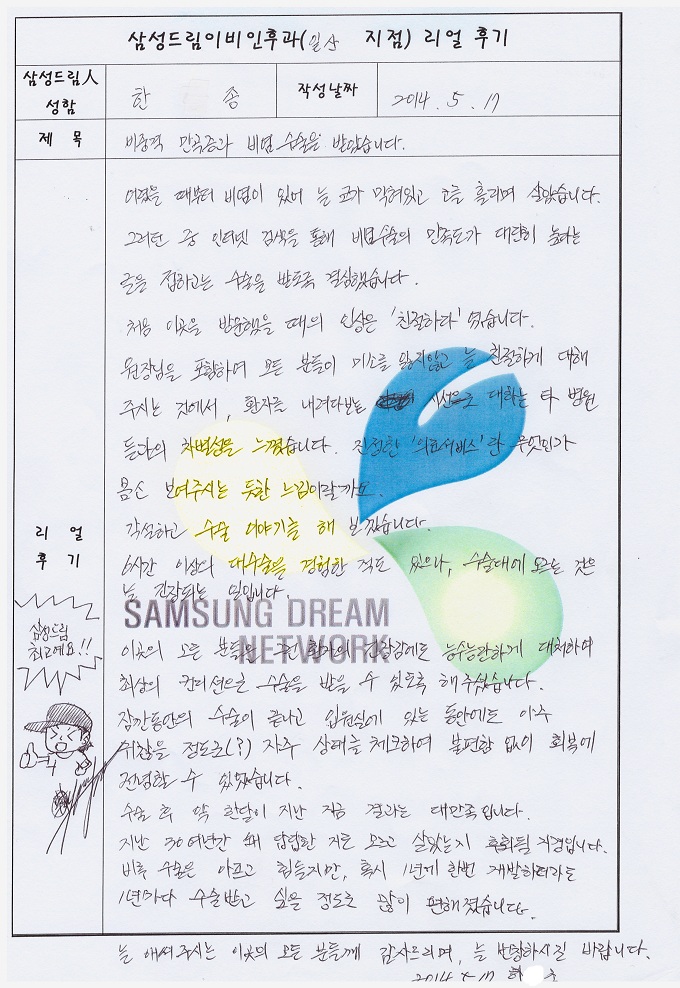 삼성드림이비인후과(일산 지점) 리얼 후기
삼성드림人 성함
한 종
작성날짜
2014. 5. 17
제 목
비중격 만곡증과 비염 수술을 받았습니다.
리 얼 후 기
어렸을 때부터 비염이 있어 늘 코가 막혀있고 코를 흘리며 살았습니다.
그러던 중 인터넷 검색을 통해 비염수술의 만족도가 대단히 높다는
글을 접하고는 수술을 받도록 결심했습니다.
처음 이곳을 방문했을 때의 인상은 '친절하다' 였습니다.
원장님을 포함하여 모든 분들이 미소를 잃지않고 늘 친절하게 대해
주시는 것에서, 환자를 내려다보는 시선으로 대하는 타 병원
들과의 차별성을 느꼈습니다. 진정한 '의료서비스'란 무엇인가
몸소 보여주시는 듯한 느낌이랄까요.
각설하고 수술 이야기를 해 보겠습니다.
6시간 이상의 대수술을 경험한 적도 있으나, 수술대에 오르는 것은
늘 긴장되는 일입니다.
SAMSUNG DREAM
NETWORK
이곳의 모든 분들은 그런 환자의 긴장감에도 능수능란하게 대처하여
최상의 컨디션으로 수술을 받을 수 있도록 해 주셨습니다.
잠깐동안의 수술이 끝나고 입원실에 있는 동안에도 아주
귀찮을 정도로(?) 자주 상태를 체크하여 불편함 없이 회복에
전념할 수 있었습니다.
수술 후 약 한달이 지난 지금 결과는 대만족입니다.
지난 30여년간 왜 답답한 지도 모르고 살았는지 후회될 지경입니다.
비후 수술은 아프고 힘들지만, 혹시 1년에 한번 재발하더라도
1년마다 수술받고 싶을 정도로 많이 편해졌습니다.
삼성드림
최고예요!!
늘 애써주시는 이곳의 모든 분들께 감사드리며, 늘 번창하시길 바랍니다.
2014 5 17 한